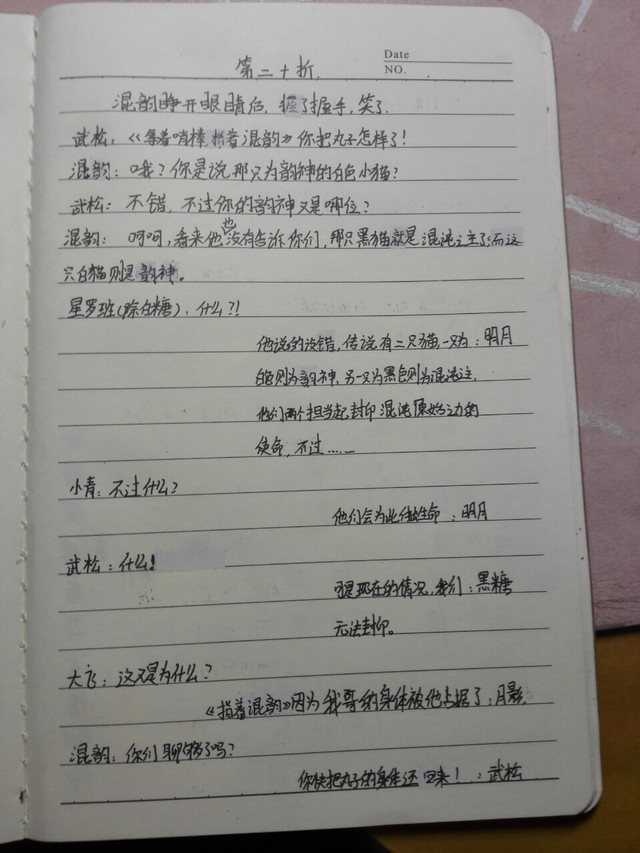 Date
第二十折.
NO.
混韵睁开眼睛后, 握了握手, 笑了.
武松: 《拿着哨棒 指着混韵》你把丸子怎样了!
混韵: 哦? 你是说那只为韵神的白色小猫?
武松: 不错, 不过你的韵神又是哪位?
混韵: 呵呵, 看来他也没有告诉你们, 那只黑猫就是混沌之主了. 而这
只白猫则是韵神。
星罗班(除白糖): 什么?!
他说的没错, 传说有二只猫, 一只为 : 明月
白色则为韵神, 另一只为黑色则为混沌主,
他们两个担当起封印混沌原始之力的
使命, 不过……
小青: 不过什么?
他们会为此付出生命 : 明月
武松: 什么!
可是现在的情况, 我们 : 黑糖
无法封印。
大飞: 这又是为什么?
《指着混韵》因为我哥的身体被他占据了 : 月影
混韵: 你们聊够了吗?
你快把丸子的身体还回来! : 武松